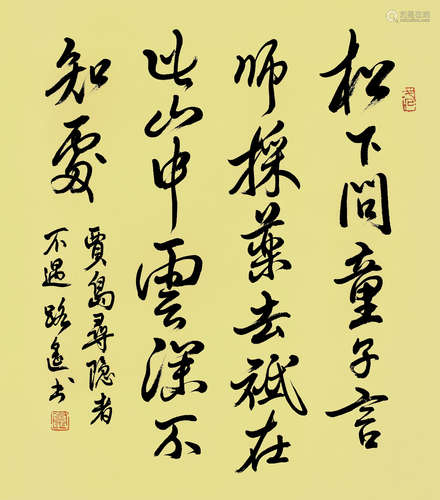 松下問童子言
師採藥去祗在
此山中雲深不
知處
賈島尋隐者
不遇 路遙书